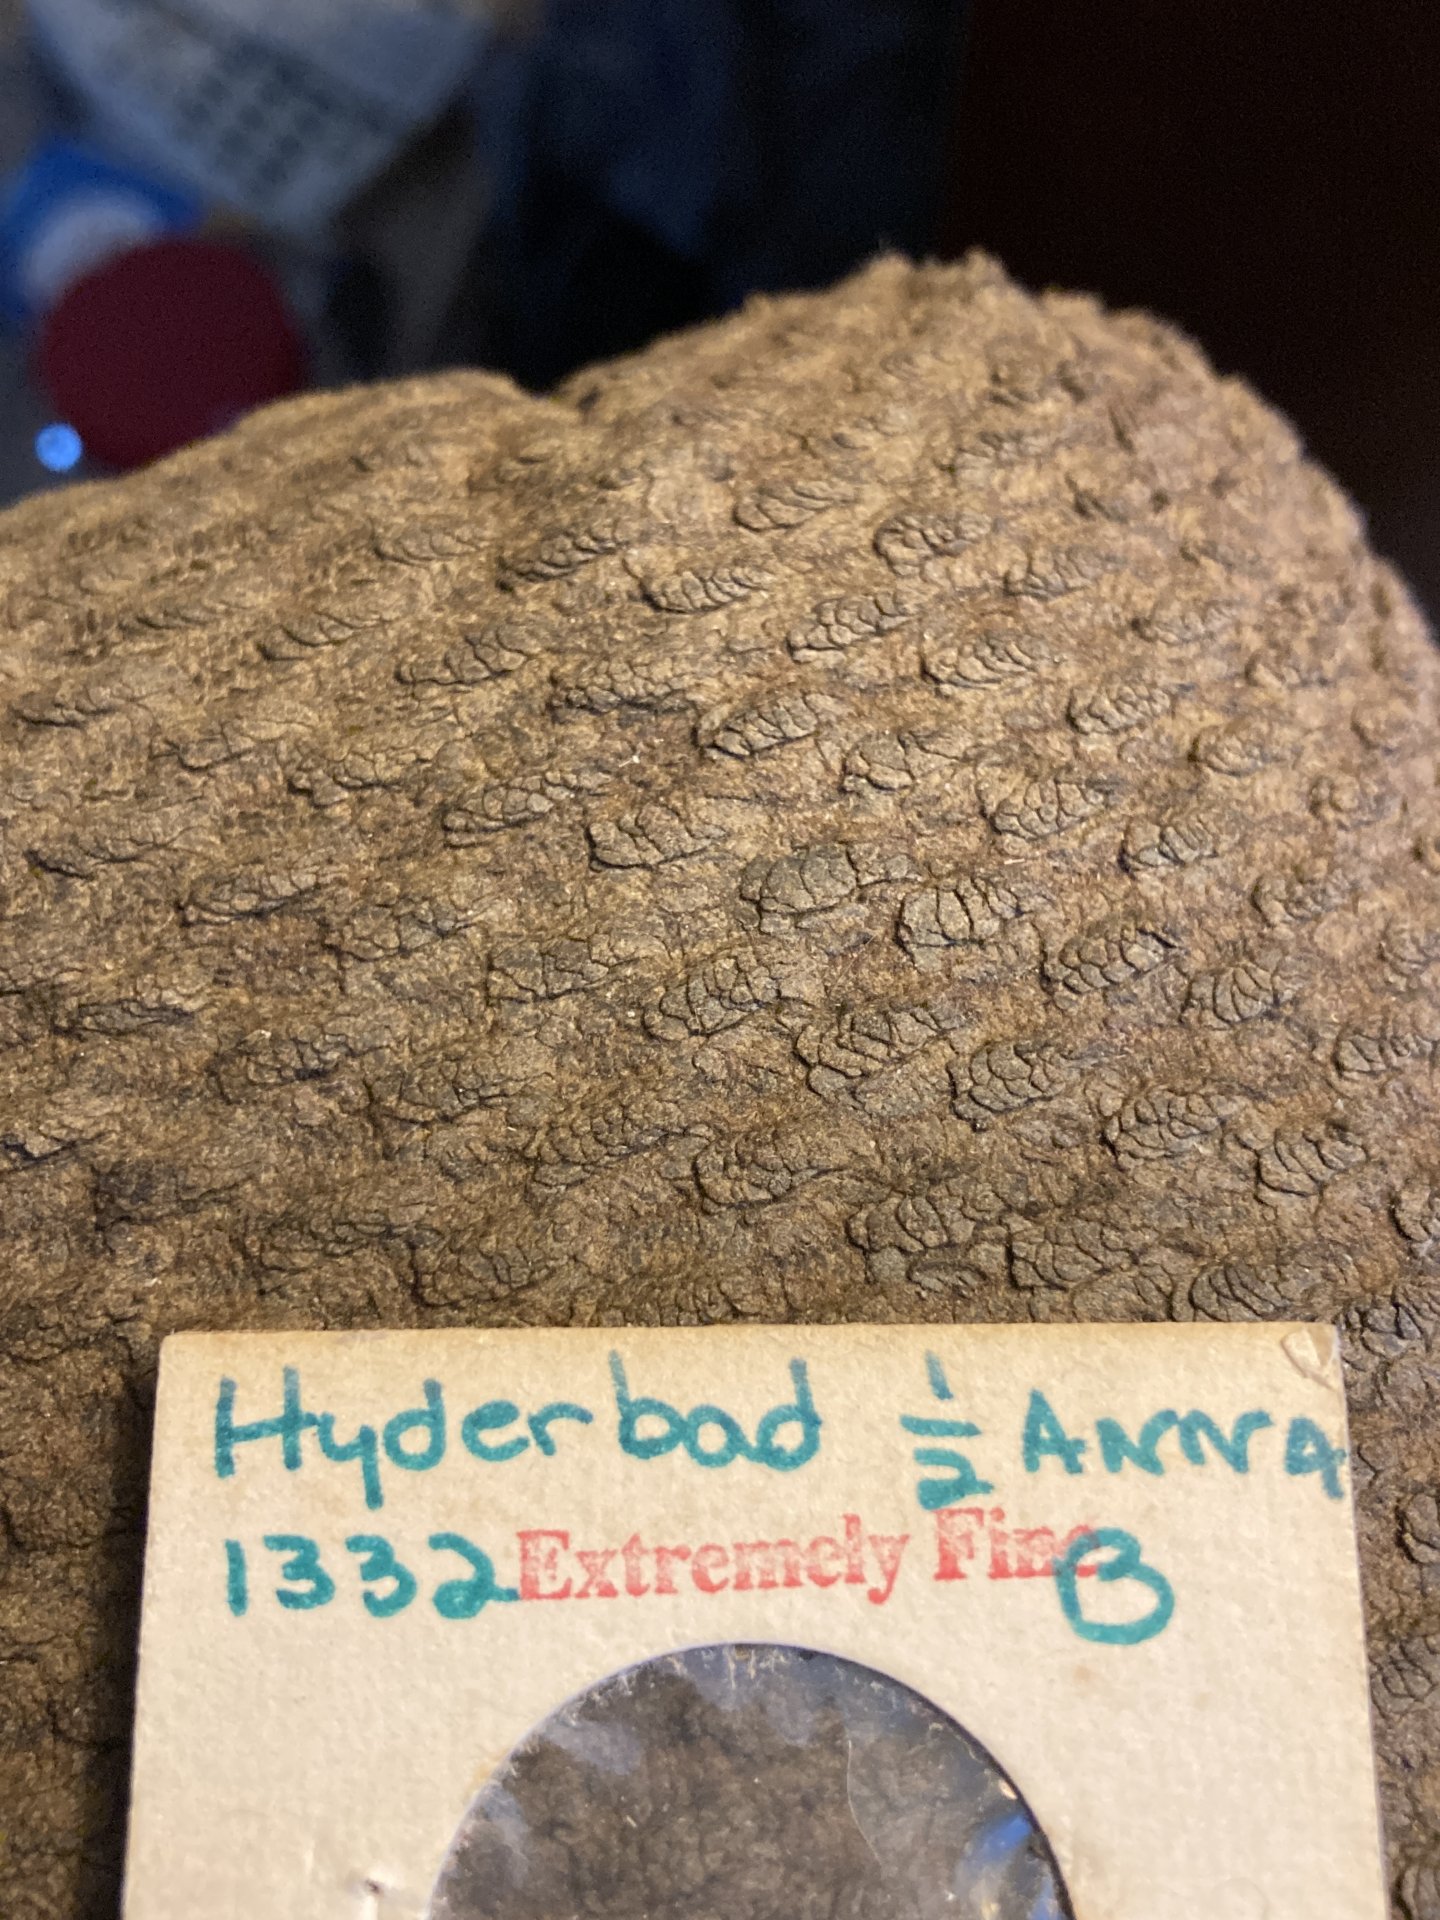 Hyderbad 1/2 ANNA
1332 Extremely Fine B